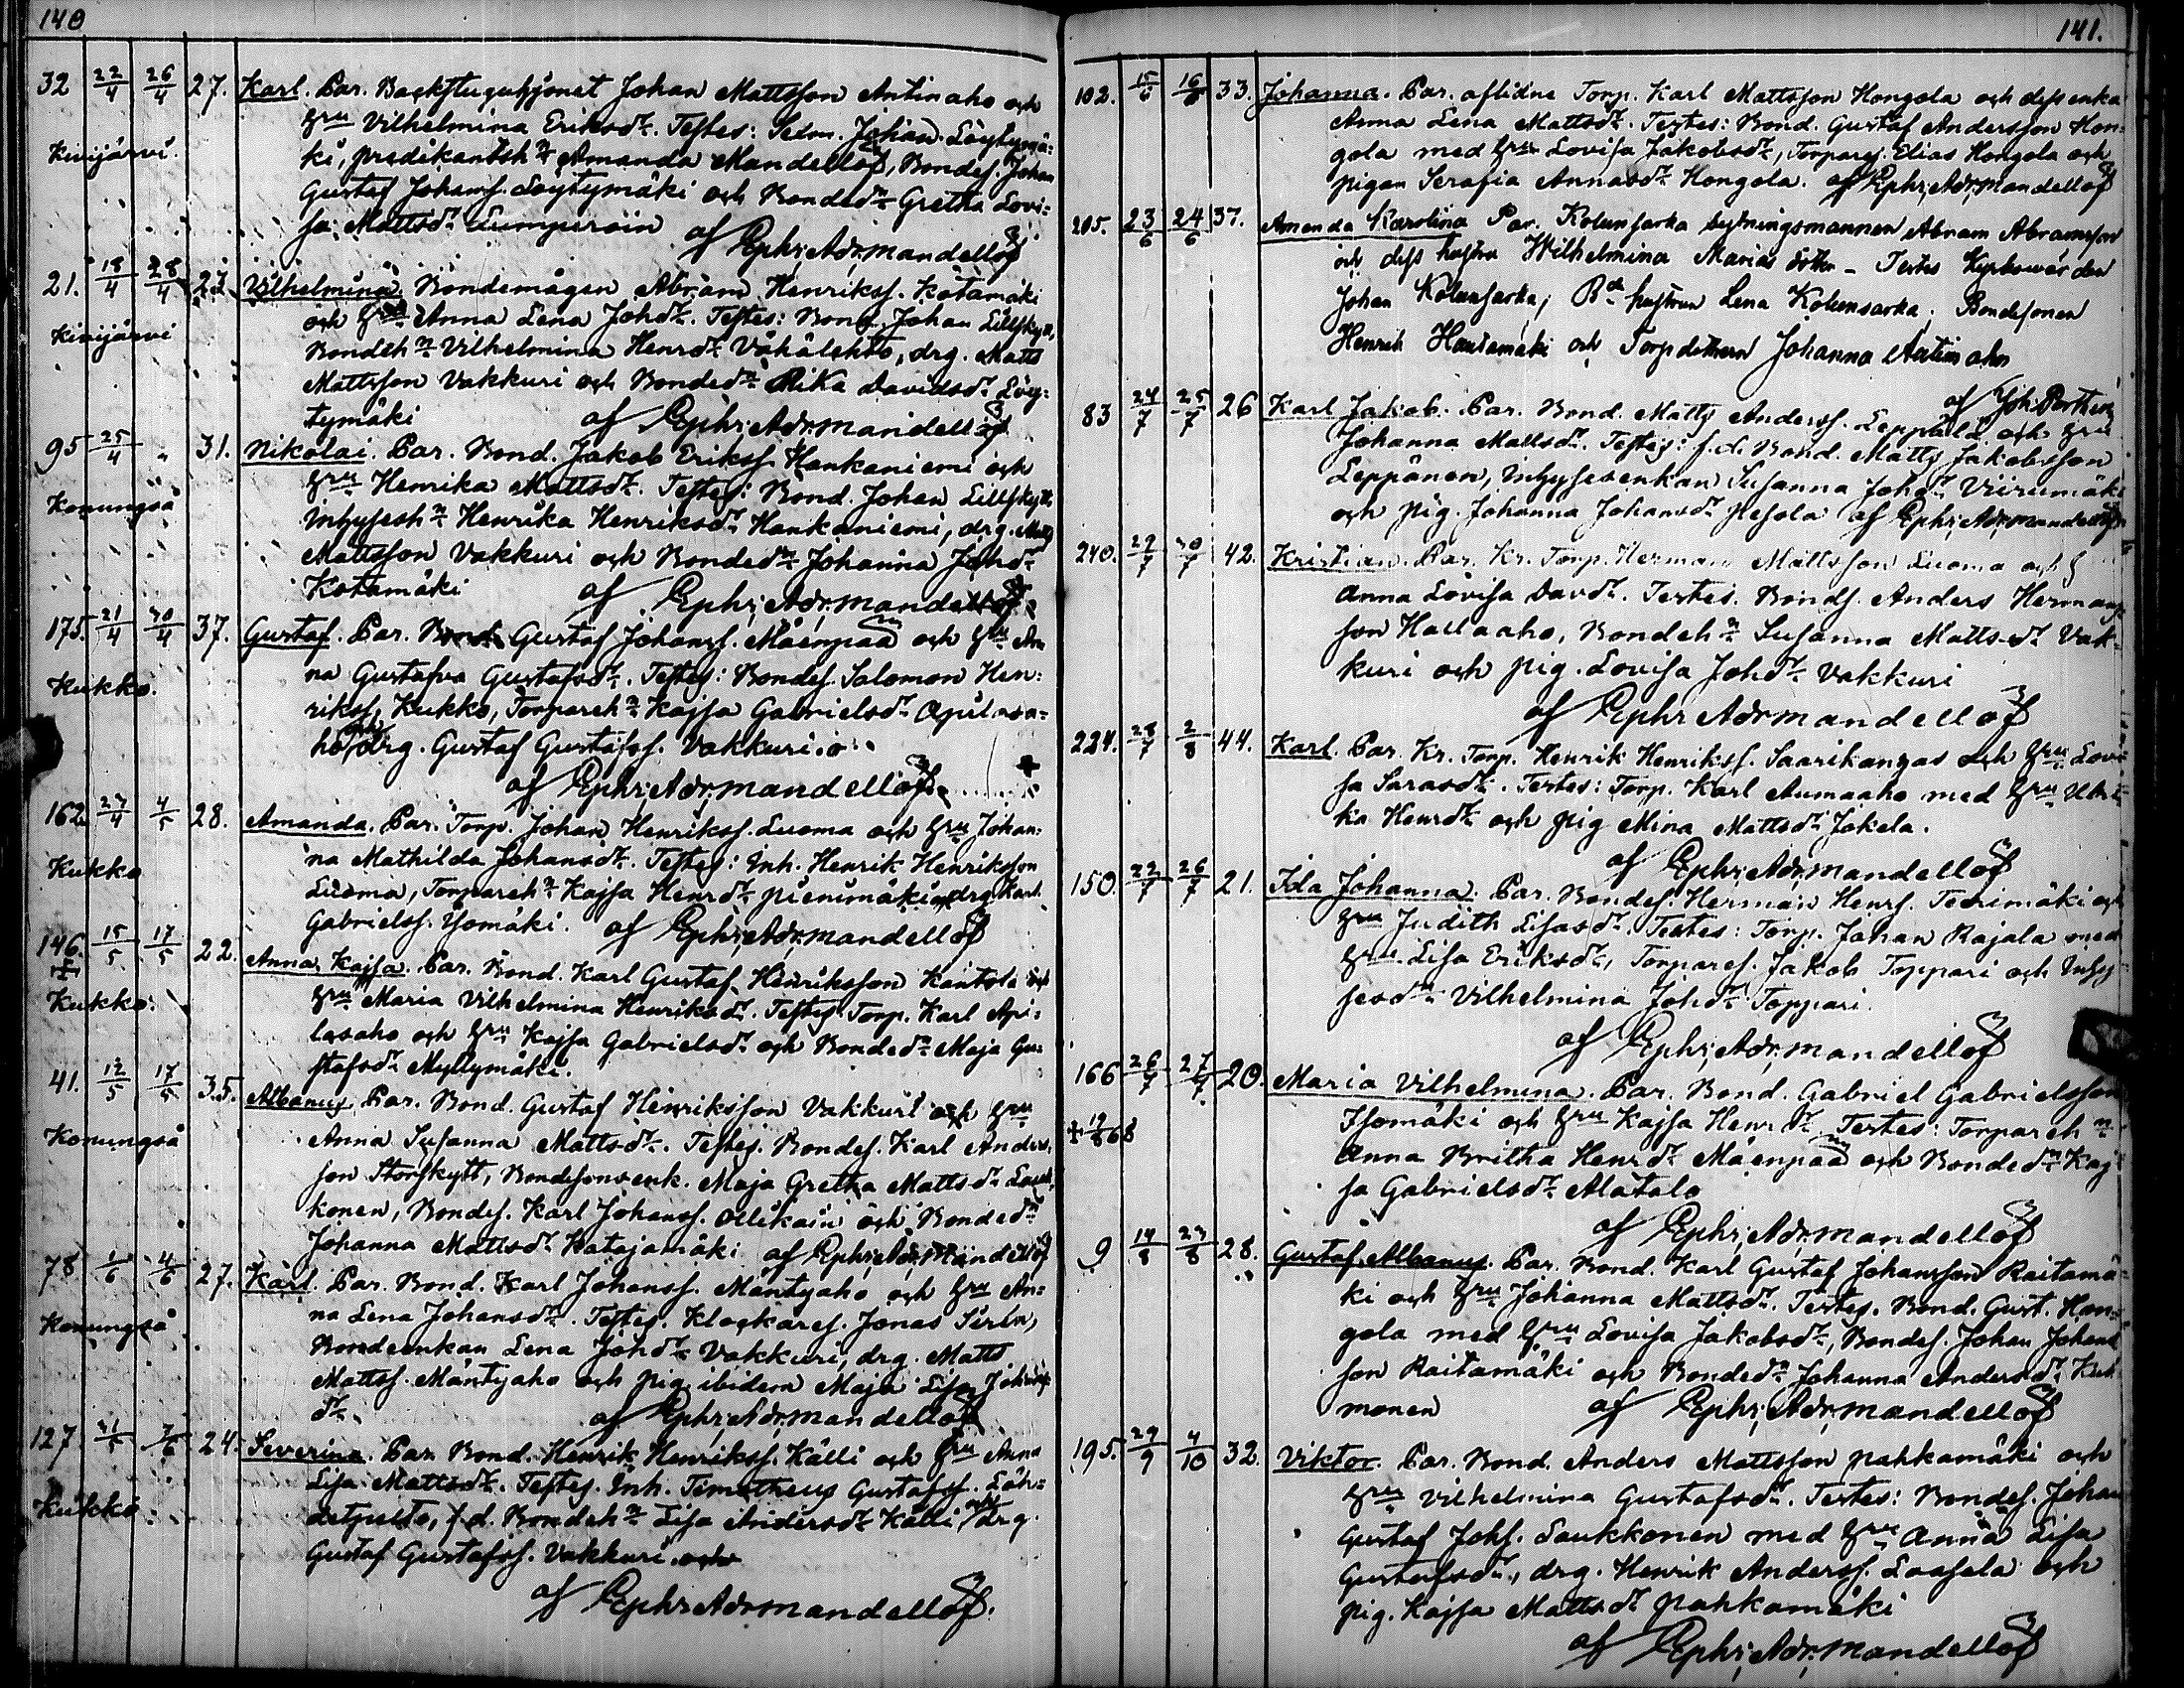 140
32 22/4 26/4 27. Karl. Par. Backstuguhjonet Johan Mattsson Antinaho och
hru Vilhelmina Eriksdr. Testes: Johan Löytymä-
Kinijärvi. ki, predikantshn Amanda Mandellöf, Bondes. Johan
Gustaf Johans. Löytymäki och Bondedn Gretha Lovi-
sa Mattsdr
af Ephr. Adr. Mandellöf
21. 18/4 28/4 27. Vilhelmina. Bondemågen Abram Henrikss. Kotamäki
och hru Anna Lena Johdr. Testes: Bond. Johan Lillskytt,
Kinijärvi
Bondehn Vilhelmina Henrdr Vähälehto, drg. Matts
Mattsson Vakkuri och Bondedn Rika Davidsdr Löy-
tymäki af Ephr. Adr. Mandellöf
95 25/4 " 31. Nikolai. Par. Bond. Jakob Erikss. Hankaniemi och
hru Henrika Mattsdr. Testes: Bond. Johan Lillskytt,
Konungså
Inhyseshn Henrika Henriksdr Hankaniemi, drg. Matts
Mattsson Vakkuri och Bondedn Johanna Johdr
Kotamäki af Ephr. Adr. Mandellöf
175. 21/4 30/4 37. Gustaf. Par. Bond. Gustaf Johanss. Mäenpää och hru An
na Gustafva Gustafsdr. Testes: Bondes. Salomon Hen-
Kukko.
rikss. Kukko, Torparehn Kajsa Gabrielsdr Apilasa-
ho, drg. Gustaf Gustafss. Vakkuri.
af Ephr. Adr. Mandellöf
162 27/4 4/5 28. Amanda. Par. Torp. Johan Henrikss. Luoma och hru Johan-
na Mathilda Johansdr. Testes: Inh. Henrik Henriksson
Kukko
Luoma, Torparehn Kajsa Henrdr Pienimäki, drg. Karl
Gabrielss. Ysomäki. af Ephr. Adr. Mandellöf
146. 15/5 17/5 22. Anna Kajsa. Par. Bond. Karl Gustaf Henriksson Kantola och
Kukko.
hru Maria Vilhelmina Henriksdr. Testes Torp. Karl Api-
lasaho och hru Kajsa Gabrielsdr och Bondedr Maja Gu-
stafsdr Myllymäki.
41. 12/5 17/5 35. Albanus. Par. Bond. Gustaf Henriksson Vakkuri och hru
Konungså
Anna Susanna Mattsdr. Testes. Bondes. Karl Anders-
son Storskytt, Bondesonsenk. Maja Gretha Mattsdr
konen, Bondes. Karl Johanss. Ollikain och Bondedn
Johanna Mattsdr Katajamäki af Ephr. Adr. Mandellöf
78 1/6 4/6 27. Karl. Par. Bond. Karl Johanss. Mäntyaho och hru An-
na Lena Johansdr. Testes. Klockares. Jonas Sirén,
Konungså
Bondeenkan Lena Johdr Vakkuri, drg. Matts
Mattss. Mäntyaho och pig. ibidem Maja Lisa Johans-
dr. af Ephr. Adr. Mandellöf
127 31/5 7/6 24. Severina. Par. Bond. Henrik Henrikss. Källi och hru Anna
Lisa Mattsdr. Testes. Inh. Timotheus Gustafss. Läh-
Kukko
detpelto, f.d. Bondehn Lisa Andersdr Källi, drg.
Gustaf Gustafss. Vakkuri.
af Ephr. Adr. Mandellöf.
141.
102. 15/6 16/6 33. Johanna. Par. aflidne Torp. Karl Mattsson Hongola och dess enka
Anna Lena Mattsdr. Testes: Bond. Gustaf Andersson Hon-
gola med hru Lovisa Jakobsdr, Torpares. Elias Hongola och
pigan Serafia Annasdr Hongola. af Ephr. Adr. Mandellöf
205. 23/6 24/6 37. Amanda Karolina Par. Kolunsarka bytningsmannen Abram Abramsson
och dess hustru Wilhelmina Marias dotter – Testes Kyrkovärden
Johan Kolunsarka, Bde hustrun Lena Kolunsarka. Bondesonen
Henrik Hautamäki och Torpdottren Johanna Antinaho
af Joh. Perthen
83 24/7 25/7 26 Karl Jakob. Par. Bond. Matts Anderss. Leppälä och hru
Johanna Mattsdr. Testes: f.d. Bond. Matts Jakobsson
Leppänen, Inhysesenkan Susanna Johdr Viirumäki
och pig. Johanna Johansdr Pesola af Ephr. Adr. Mandellöf
240. 29/7 30/7 42. Kristian. Par. Kr. Torp. Herman Mattsson Luoma och h
Anna Lovisa Davdr. Testes. Bonds. Anders Hermans-
son Hallaaho, Bondehn Susanna Mattsdr Vak-
kuri och pig. Lovisa Johdr Vakkuri
af Ephr. Adr. Mandellöf
224. 28/7 2/8 44. Karl. Par. Kr. Torp. Henrik Henrikss. Saarikangas och hru Lovi
sa Sarasdr. Testes: Torp. Karl Aumaaho med hru Ulri-
ka Henrdr och pig Mina Mattsdr Jokela.
af Ephr. Adr. Mandellöf
150. 22/7 26/7 21. Ida Johanna. Par. Bondes. Herman Henrs. Teerimäki och
hru Judith Lisasdr. Testes: Torp. Johan Rajala med
hru Lisa Eriksdr, Torpares. Jakob Toppari och Inhy
sesdn Vilhelmina Johdr Toppari.
af Ephr. Adr. Mandellöf
166 26/7 27/7 20. Maria Vilhelmina. Par. Bond. Gabriel Gabrielsson
Isomäki och hru Kajsa Henrdr. Testes: Torparehn
Anna Britha Henrdr Mäenpää och Bondedn Kaj
sa Gabrielsdr Alatalo
af Ephr. Adr. Mandellöf
9 14/8 23/8 28. Gustaf Albanus. Par. Bond. Karl Gustaf Johansson Raitamä-
ki och hru Johanna Mattsdr. Testes. Bond. Gust. Hon-
gola med hru Lovisa Jakobsdr, Bondes. Johan Johans
son Raitamäki och Bondedn Johanna Andersdr
monen af Ephr. Adr. Mandellöf
195. 29/9 4/10 32. Viktor. Par. Bond. Anders Mattsson Pahkamäki och
hru Vilhelmina Gustafsdr. Testes: Bondes. Johan
Gustaf Johs. Laukkonen med hru Anna Lisa
Gustafsdr, drg. Henrik Anderss. Lassela och
pig. Kajsa Mattsdr Pahkamäki
af Ephr. Adr. Mandellöf